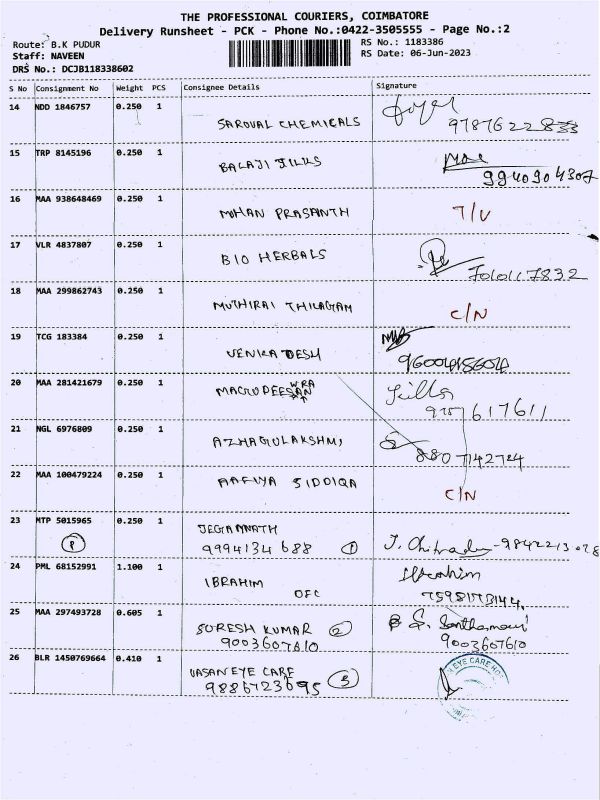 THE PROFESSIONAL COURIERS, COIMBATORE
Delivery Runsheet - PCK - Phone No.:0422-3505555 - Page No.:2
Route: B.K PUDUR
RS No.: 1183386
Staff: NAVEEN
RS Date: 06-Jun-2023
DRS No.: DCJB118338602
S No Consignment No Weight PCS Consignee Details Signature
14 NDD 1846757 0.250 1
SAROVAL CHEMICALS
15 TRP 8145196 0.250 1
BALAJI
9940904307
16 MAA 938648469 0.250 1
MOHAN PRASANTH T/U
17 VLR 4837807 0.250 1
BIO HERBALS
7010117832
18 MAA 299862743 0.250 1
MUTHIRAI THILAGAM C/N
19 TCG 183384 0.250 1
VENKATESH
20 MAA 281421679 0.250 1
21 NGL 6976809 0.250 1
AZHAGULAKSHMI
8807142724
22 MAA 100479224 0.250 1
AAFIYA SIDDIQA C/N
23 MTP 5015965 0.250 1
JEGANNATH
9994134688 1
24 PML 68152991 1.100 1
IBRAHIM Ibrahim
OFC
25 MAA 297493728 0.605 1
SURESH KUMAR 2
9003607610 9003607610
26 BLR 1450769664 0.410 1
VASAN EYE CARE 3
9886723695
EYE CARE